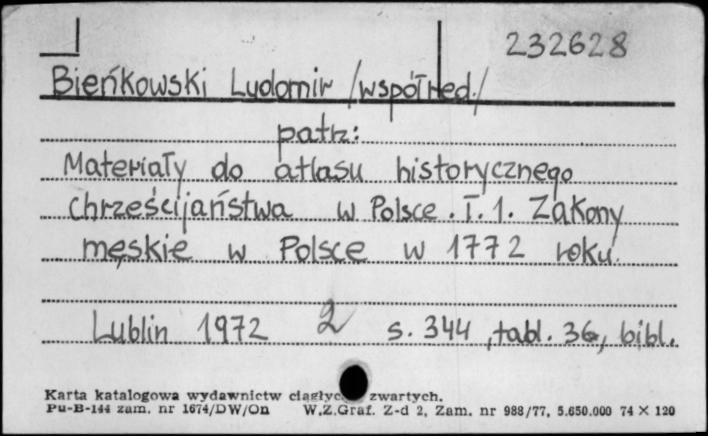 232628
Bieńkowski Ludomir /współred./
patrz:
Materiały do atlasu historycznego
chrześcijaństwa w Polsce. T. 1. Zakony
męskie w Polsce w 1772 roku.
Lublin 1972 2 s. 344, tabl. 36, bibl.
Karta katalogowa wydawnictw ciągłych zwartych.
Pu-B-144 zam. nr 1674/DW/On W.Z.Graf. Z-d 2, Zam. nr 988/77, 5.650.000 74 X 120